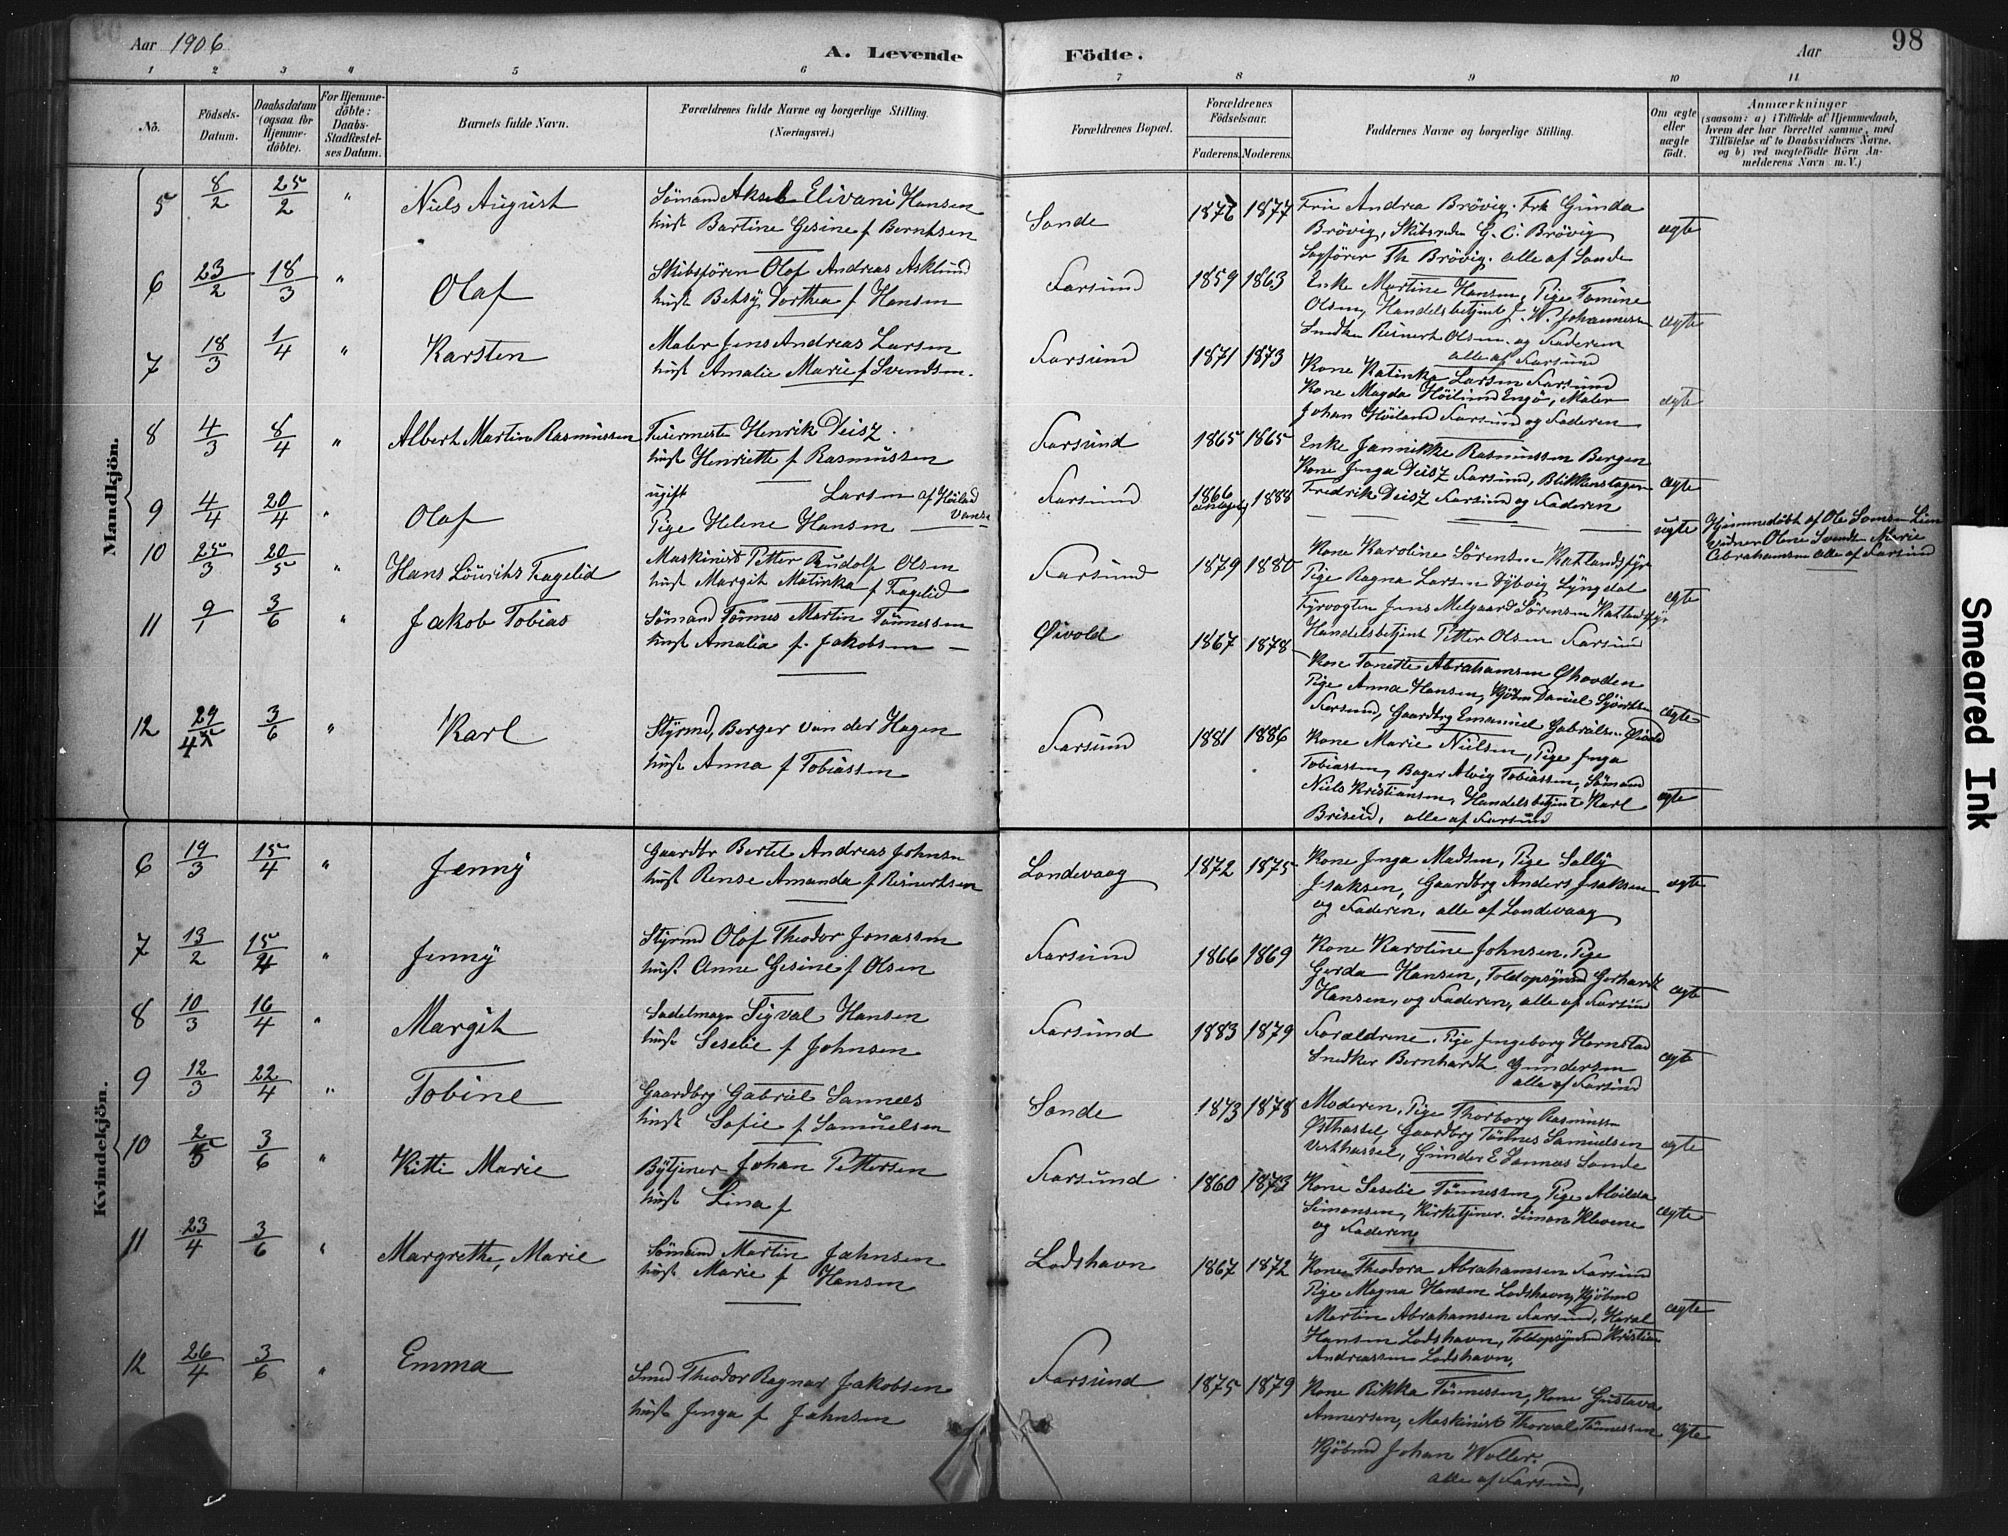 Aar 1906
A. Levende Födte.
Aar
98
1 2 3 4 5 6 7 8 9 10 11
No.
Födsels-Datum.
Daabsdatum (ogsaa for Hjemmedöbte).
For Hjemmedöbte: Daabs-Stadfæstelses Datum.
Barnets fulde Navn.
Forældrenes fulde Navne og borgerlige Stilling. (Næringsvei.)
Forældrenes Bopæl.
Forældrenes Födselsaar.
Faderens. Moderens.
Faddernes Navne og borgerlige Stilling.
Om ægte eller uægte födt.
Anmærkninger
(saasom: a) i Tilfælde af Hjemmedaab, hvem der har forrettet samme, med Tilföielse af to Daabsvidners Navne, og b) ved uægtefödte Börn Anmelderens Navn m. V.)
Mandkjön.
5 8/2 25/2 " Niels August
Sömand Aksel Elivani Hansen
hust Bartine Gesine f Berntsen
Sande 1876 1877
Fru Andrea Brövig. Frk Gunda
Brövig, Skibsreder G. C. Brövig
Sagförer Th Brövig. alle af Sande
ægte
6 23/2 18/3 " Olaf
Skibsförer Olaf Andreas Asklund
hust Betsy Dorthea f Hansen
Farsund 1859 1863
Enke Martine Hansen, Pige Tomine
Olsen, Handelsbetjent J. W. Johannesen
Snedker Reinert Olsen og Faderen
alle af Farsund
ægte
7 18/3 1/4 " Karsten
Maler Jens Andreas Larsen
hust Amalie Marie f Svendsen.
Farsund 1871 1873
Kone Katinka Larsen Farsund
Kone Magda Höiland Engö, Maler
Johan Höiland Farsund og Faderen
ægte
8 4/3 8/4 " Albert Martin Rasmussen
Henrik Deisz.
hust Henriette f Rasmussen
Farsund 1865 1865
Enke Jannikke Rasmussen Bergen
Kone Inga Deisz Farsund, Blikkenslager
Fredrik Deisz Farsund og Faderen
ægte
9 4/4 20/4 " Olaf
ugift Larsen af Höiland Vanse
Pige Helene Hansen
Farsund 1866 antagel, 1888
uægte
Hjemmedöbt af Ole Lien
Vidner Oline Svendsen Marie
Abrahamsen alle af Farsund
10 25/3 20/5 " Hans Louritz Fagelid
Maskinist Petter Rudolf Olsen
hust Margit Matinka f Fagelid
Farsund 1879 1880
Kone Karoline Sörensen Katlandsfyr
Pige Ragna Larsen Dybvig Lyngdal
Fyrvogten Jens Melgaard Sörensen Katlandsfyr
Handelsbetjent Petter Olsen Farsund
ægte
11 9/1 3/6 " Jakob Tobias
Sömand Tönnes Martin Tönnessen
hust Amalia f. Jakobsen
Øivold 1867 1878
Kone Tonette Abrahamsen
Pige Anna Hansen, Kjöbm Daniel
Farsund, Gaardbrg Emanuel Gabrielsen Øivold
ægte
12 29/4 3/6 " Karl
Styrmd, Berger van der Hagen
hust Anna f Tobiassen
Farsund 1881 1886
Kone Marie Nielsen, Pige Inga
Tobiassen, Bager Alvig Tobiassen, Sömand
Niels Kristiansen, Handelsbetjent Karl
Briseid, alle af Farsund
ægte
Kvindekjön.
6 19/3 15/4 " Jenny
Gaardbr Bertel Andreas Johnsen
hust Rense Amanda f Reinertsen
Londevaag 1872 1875
Kone Inga Madsen, Pige Sally
Isaksen, Gaardbrg Anders Isaksen
og Faderen, alle af Londevaag
ægte
7 13/2 15/4 " Jenny
Styrmd Olaf Theodor Jonassen
hust Anne Gesine f Olsen
Farsund 1866 1869
Kone Karoline Johnsen. Pige
Gerda Hansen, Toldopsynsmd Gerhardt
Hansen, og Faderen, alle af Farsund
ægte
8 10/3 16/4 " Margit
Sadelmager Sigval Hansen
hust Seselie f Johnsen
Farsund 1883 1879
Forældrene. Pige Ingeborg Hornstad
Snedker Bernhardt Gundersen
alle af Farsund
ægte
9 12/3 22/4 " Tobine
Gaardbrg Gabriel Sannæs
hust Sofie f Samuelsen
Sande 1873 1878
Moderen, Pige Thorborg Rasmussen
Østhassel, Gaardbrg Tönnes Samuelsen
Vesthassel, Gunder E Sannæs Sande
ægte
10 2/5 3/6 " Kitti Marie
Bytjener Johan Pettersen
hust Lina f
Farsund 1860 1873
Kone Seselie Tönnessen, Pige Alvilda
Simonsen, Kirketjener Simon Klevene
og Faderen,
ægte
11 23/4 3/6 " Margrethe, Marie
Sömand Martin Jahnsen
hust Marie f Hansen
Lodshavn 1867 1872
Kone Theodora Abrahamsen Farsund
Pige Magna Hansen Lodshavn, Kjöbmd
Martin Abrahamsen Farsund, Haral
Hansen Lodshavn, Toldopsynsmd Kristian
Andreassen Lodshavn,
ægte
12 26/4 3/6 " Emma
Smed Theodor Ragnar Jakobsen
hust Inga f Jahnsen
Farsund 1875 1879
Kone Rikka Tönnessen, Kone Gustava
Annersen, Maskinist Thorval Tönnessen
Kjöbmd Johan Woller.
alle af Farsund,
ægte
Smeared Ink